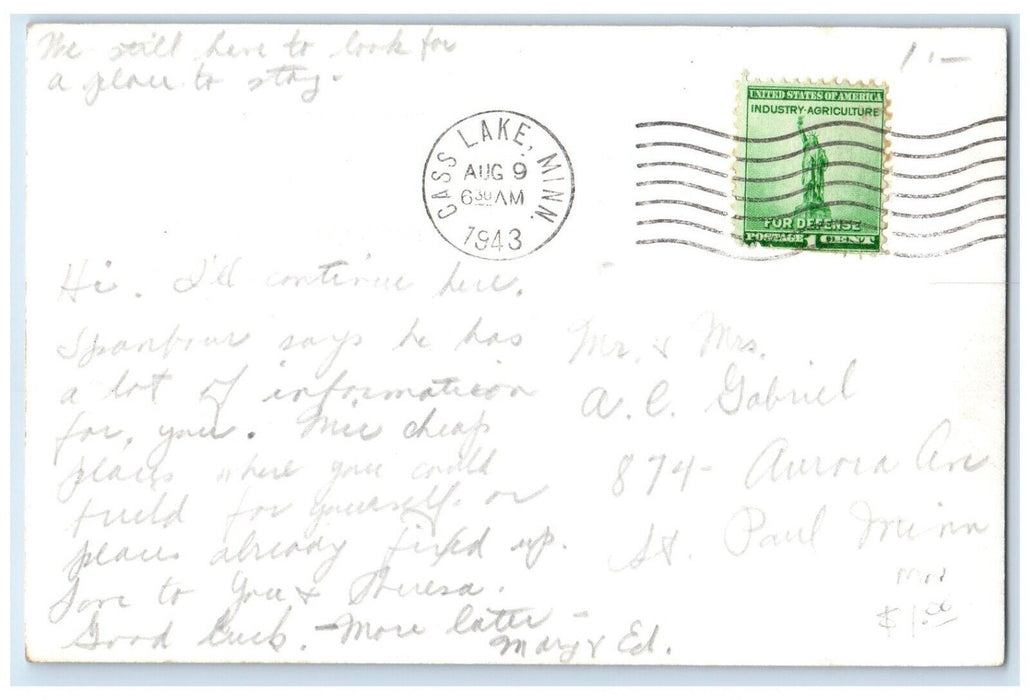 We still have to look for
a place to stay.
1.-
UNITED STATES OF AMERICA
INDUSTRY-AGRICULTURE
FOR DEFENSE
POSTAGE 1 CENT
CASS LAKE, MINN.
AUG 9
6 30 AM
1943
Hi. I'll continue here.
says he has
a lot of information
for you. Nice cheap
places where you could
build for yourself. or
places already fixed up.
Love to You & Theresa.
Good luck. - More later -
Mary & Ed.
Mr. & Mrs.
A. C. Gabriel
874 - Aurora Ave
St. Paul Minn
$1.00